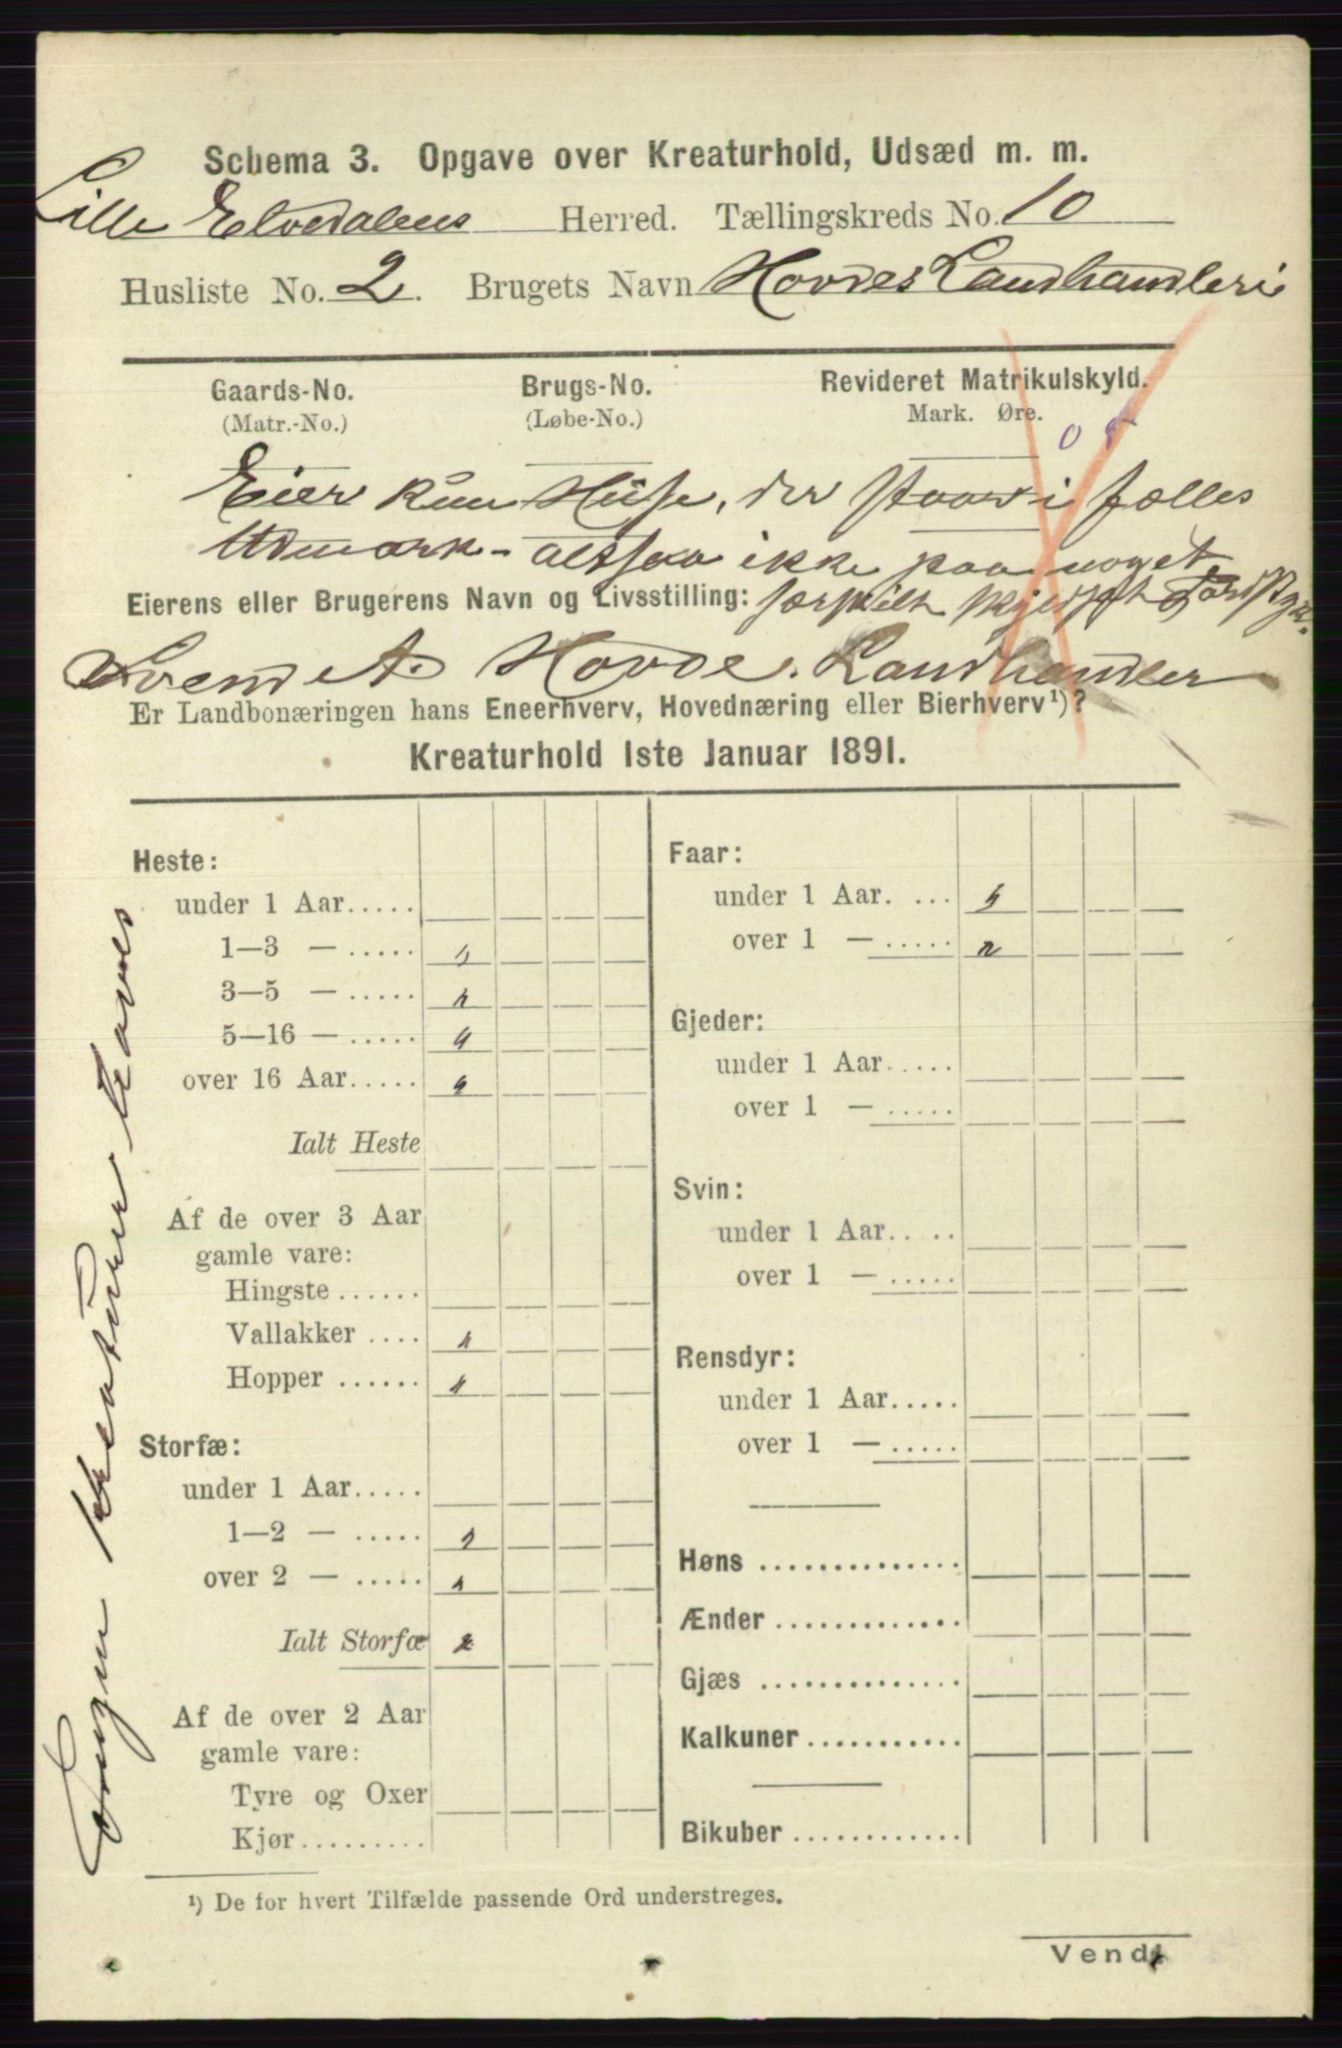 Schema 3. Opgave over Kreaturhold, Udsæd m. m.
Lille Elvedalens Herred. Tællingskreds No. 10
Husliste No. 2. Brugets Navn Hovdes Landhandleri
Gaards-No. Brugs-No. Revideret Matrikulskyld.
(Matr.-No.) (Løbe-No.) Mark. Øre.
0
Eier kun Huse, der staar i fælles
Udmark - altsaa ikke paa noget
Eierens eller Brugerens Navn og Livsstilling: særskilt
Svend A. Hovde. Landhandler
Er Landbonæringen hans Eneerhverv, Hovednæring eller Bierhverv¹)?
Kreaturhold 1ste Januar 1891.
Heste:
under 1 Aar.....
1—3 — .....
3—5 — .....
5—16 — .....
over 16 Aar.....
Ialt Heste
Af de over 3 Aar
gamle vare:
Hingste ......
Vallakker .... 1
Hopper ...... 1
Storfæ:
under 1 Aar.....
1—2 — .....
over 2 — ..... 1
Ialt Storfæ 2
Af de over 2 Aar
gamle vare:
Tyre og Oxer
Kjør.........
Faar:
under 1 Aar. ...
over 1 — ..... 2
Gjeder:
under 1 Aar.....
over 1 — .....
Svin:
under 1 Aar.. ..
over 1 — .....
Rensdyr:
under 1 Aar.....
over 1 — .....
Høns ..............
Ænder .............
Gjæs ..............
Kalkuner ...........
Bikuber ............
Ingen Kreaturer haves
¹) De for hvert Tilfælde passende Ord understreges.
Vend!